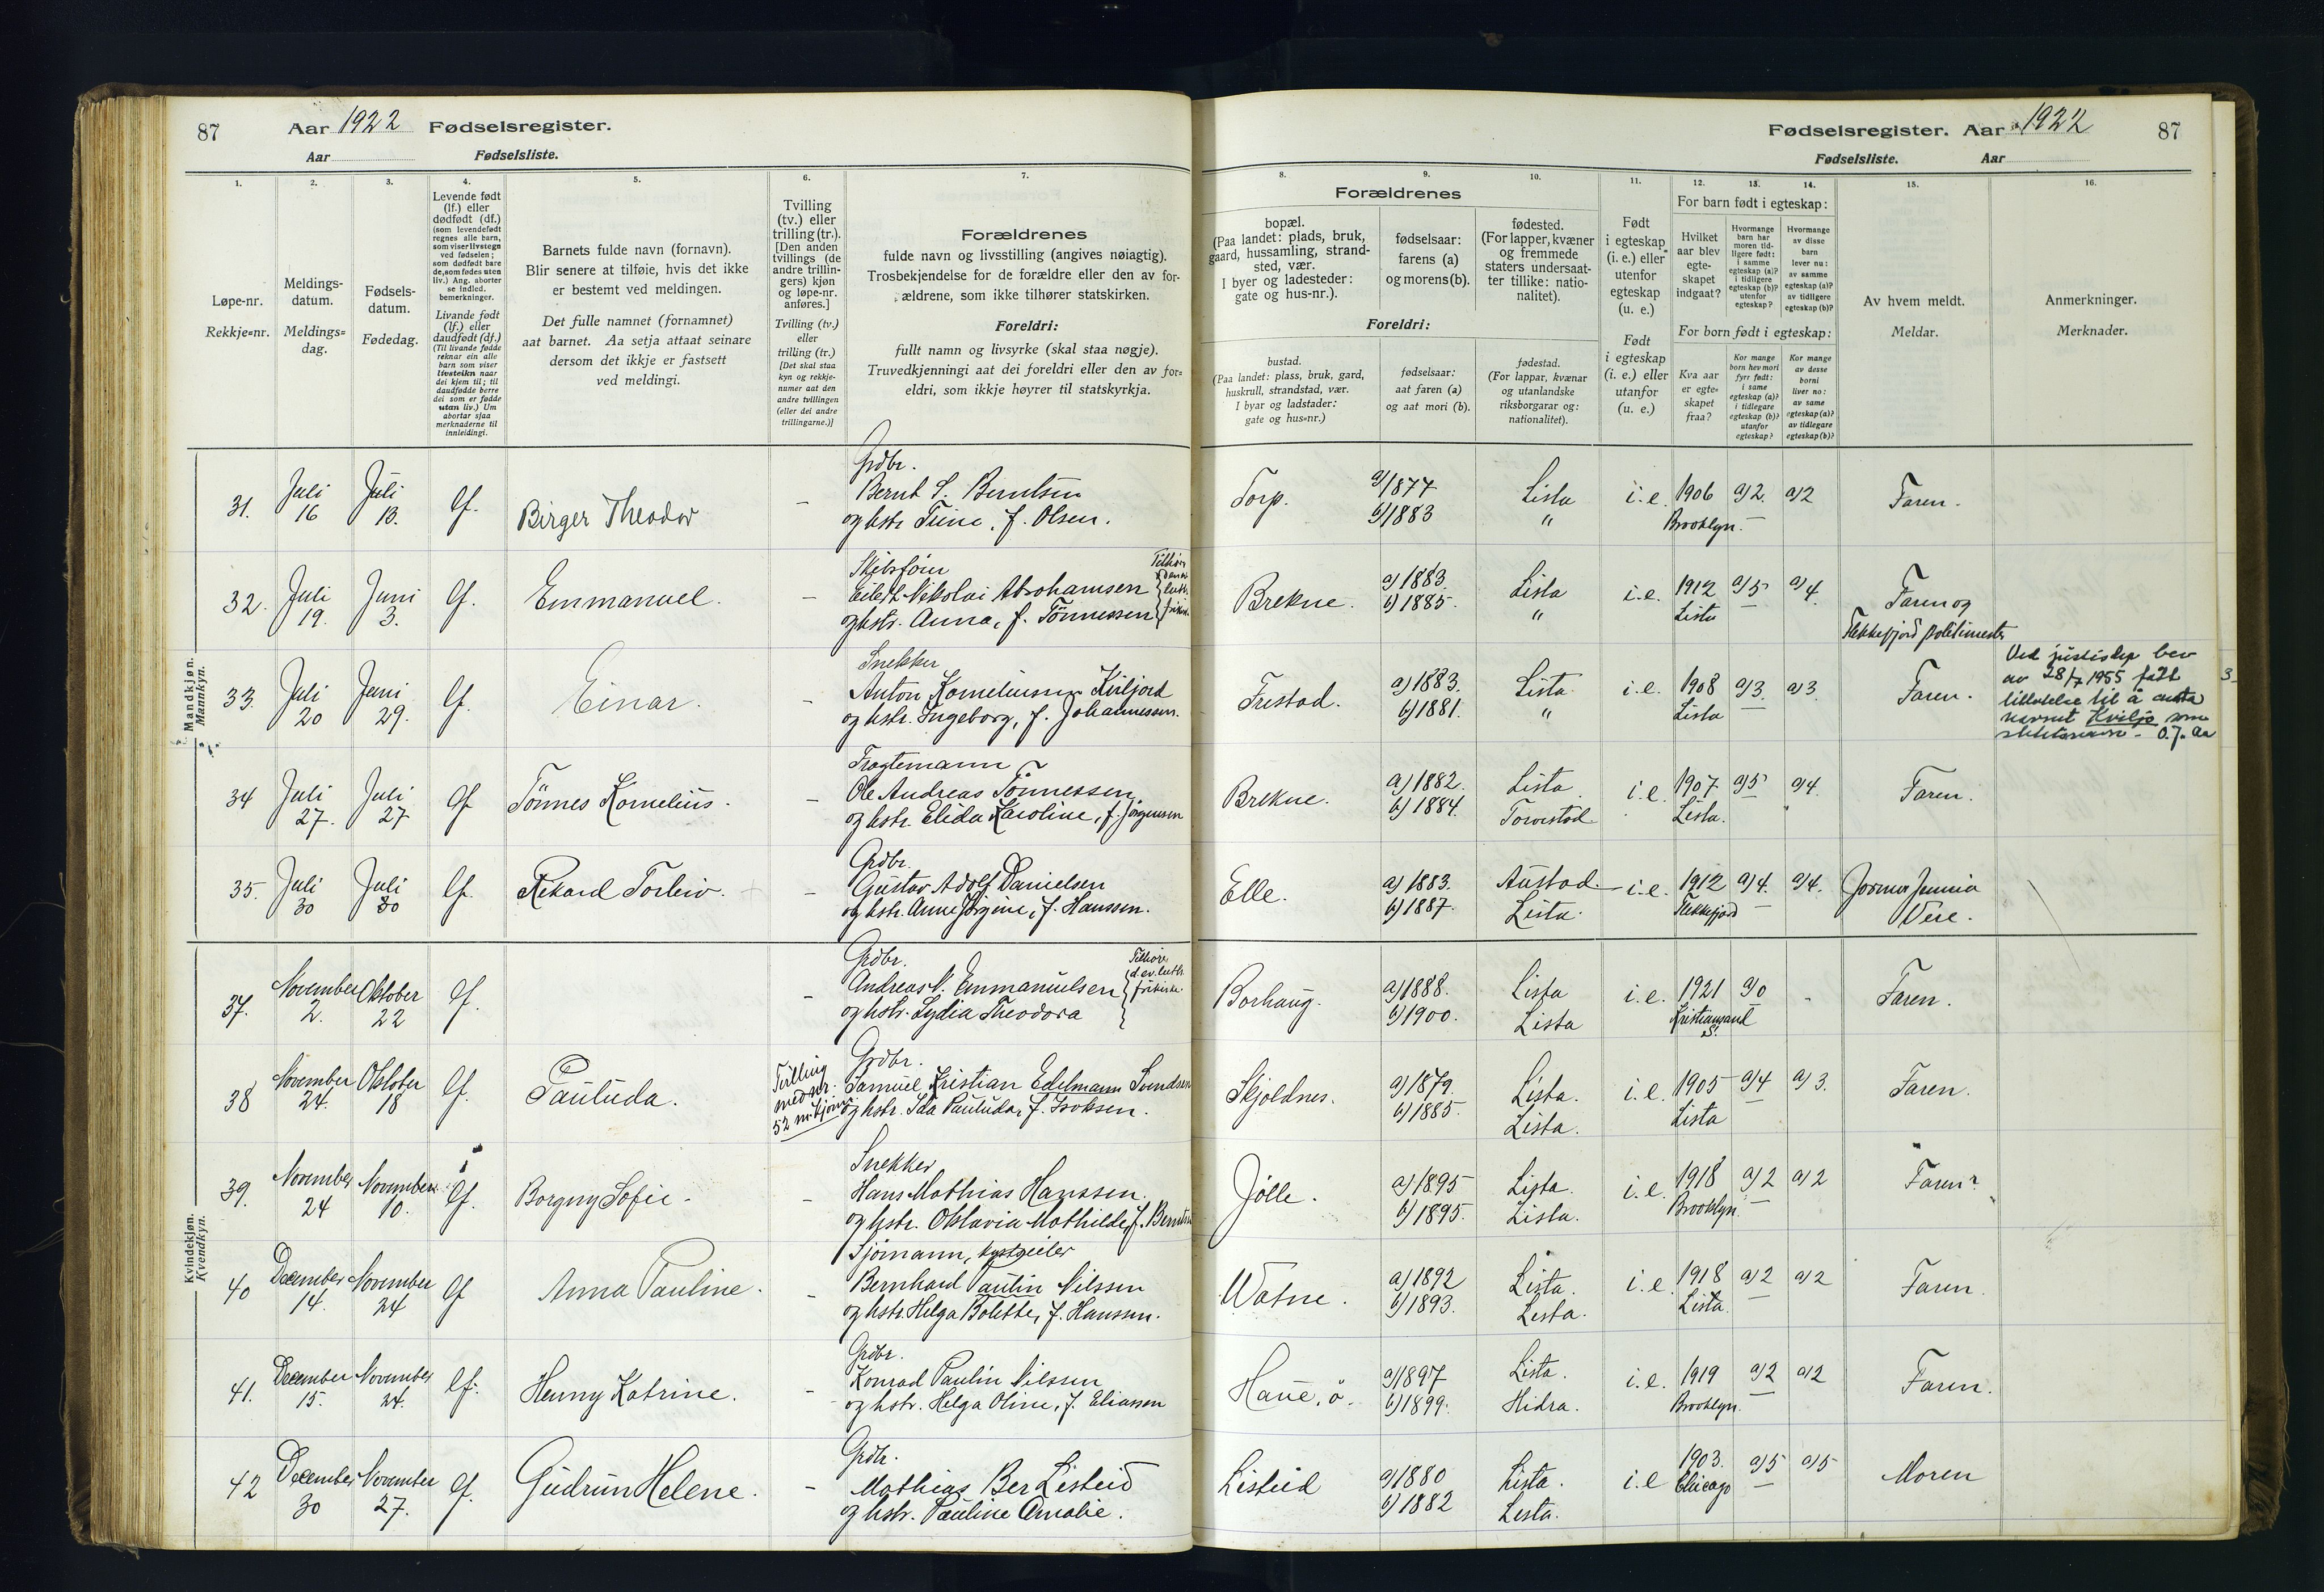 87 Aar 1922 Fødselsregister.
Aar Fødselsliste.
Fødselsregister. Aar 1922 87
Fødselsliste. Aar
1. 2. 3. 4. 5. 6. 7.
Løpe-nr.
Rekkje=nr.
Meldings-
datum.
Meldings=
dag.
Fødsels-
datum.
Fødedag.
Levende født
(lf.) eller
dødfødt (df.)
(som levendefødt
regnes alle barn,
som viser livstegn
ved fødselen;
som dødfødt bare
de, som fødes uten
liv.) Ang. aborter
se indled.
bemerkninger.
Livande født
(lf.) eller
daudfødt (df.)
(Til livande fødde
reknar ein alle
barn som viser
livsteikn naar
dei kjem til; til
daudfødde berre
dei som er fødde
utan liv.) Um
abortar sjaa
merknaderne til
innleidingi.
Barnets fulde navn (fornavn).
Blir senere at tilføie, hvis det ikke
er bestemt ved meldingen.
Det fulle namnet (fornamnet)
aat barnet. Aa setja attaat seinare
dersom det ikkje er fastsett
ved meldingi.
Tvilling
(tv.) eller
trilling (tr.).
[Den anden
tvillings (de
andre trillin-
gers) kjøn
og løpe-nr.
anføres.]
Tvilling (tv.)
eller
trilling (tr.)
[Det skal staa
kyn og rekkje-
numer aat den
andre tvillingen
(eller dei andre
trillingarne.)]
Forældrenes
fulde navn og livsstilling (angives nøiagtig).
Trosbekjendelse for de forældre eller den av for-
ældrene, som ikke tilhører statskirken.
Foreldri:
fullt namn og livsyrke (skal staa nøgje).
Truvedkjenningi aat dei foreldri eller den av for=
eldri, som ikkje høyrer til statskyrkja.
8. 9. 10. 11. 12. 13. 14. 15. 16.
Forældrenes
bopæl.
(Paa landet: plads, bruk,
gaard, hussamling, strand-
sted, vær.
I byer og ladesteder:
gate og hus-nr.).
fødselsaar:
farens (a)
og morens (b).
fødested.
(For lapper, kvæner
og fremmede
staters undersaat-
ter tillike: natio-
nalitet).
Foreldri:
bustad.
(Paa landet: plass, bruk, gard,
huskrull, strandstad, vær.
I byar og ladstader:
gate og hus=nr.)
fødselsaar:
aat faren (a)
og aat mori (b).
fødestad.
(For lappar, kvænar
og utanlandske
riksborgarar og:
nationalitet).
Født
i egteskap
(i. e.) eller
utenfor
egteskap
(u. e.)
Født
i egteskap
(i. e.) eller
utanfor
(u. e.)
For barn født i egteskap:
Hvilket
aar blev
egte-
skapet
indgaat?
Hvormange
barn har
moren tid-
ligere født:
i samme
egteskap (a)?
i tidligere
egteskap (b)?
utenfor
egteskap?
Hvormange
av disse
barn
lever nu:
av samme
egteskap (a)?
av tidligere
egteskap (b)?
For born født i egteskap:
Kva aar
er egte-
skapet
fraa?
Kor mange
born hev mori
fyrr født:
i same
egteskap (a)?
i tidlegare
egteskap (b)?
utanfor
egteskap?
Kor mange
av desse
borni
liver no:
av same
egteskap (a)?
av tidlegare
egteskap (b)?
Av hvem meldt.
Meldar.
Anmerkninger.
Merknader.
Mandkjøn.
Mannkyn.
31. Juli 16 Juli 13. lf. Birger Theodor –
Grdbr.
Bernt S. Berntsen
og hstr. Trine, f. Olsen.
Torp. a) 1874 b) 1883 Lista " i. e. 1906 Brooklyn. a) 2. – a) 2 Faren.
32. Juli 19. Juni 3. lf. Emmanuel. –
Skibsfører
Eilert Nikolai Abrahamsen
og hstr. Anna, f. Tönnessen
Brekne. a) 1883. b) 1885. Lista " i. e. 1912 Lista a) 5 – a) 4. Faren og
Flekkefjord politimester
33. Juli 20 Juni 29. lf. Einar. –
Snekker
Anton Kornelius
og hstr. Ingeborg, f. Johannessen.
Frestad. a) 1883. b) 1881. Lista " i. e. 1908 Lista a) 3. – a) 3. Faren.
Ved justisdep bev
av 28/7 1955 fått
tillatelse til å anta
navnet Kviljo som
slektsnavn – O.J. Aa
34 Juli 27. Juli 27 lf Tönnes Kornelius. –
Fragtemann
Ole Andreas Tönnessen
og hstr. Elida Karoline, f. Jörgensen
Brekne. a) 1882. b) 1884. Lista. i. e. 1907 Lista. a) 5 – a) 4. Faren.
35. Juli 30 Juli 30 lf. Rikard Torleiv. –
Grdbr.
Gustav Adolf Danielsen
og hstr. Anne Jörgine, f. Hanssen.
Elle. a) 1883. b) 1887. Austad. Lista. i. e. 1912 Flekkefjord a) 4. – a) 4. Jormor
Kvindekjøn.
Kvendkyn.
37. November 2. Oktober 22 lf. –
Grdbr.
Andreas N. Emmanuelsen
og hstr. Lydia Theodora
Tilhör
d ev. luth.
frikirke.
Borhaug. a) 1888. b) 1900. Lista Lista i. e. 1921 Kristiansand S. a) 0 – Faren.
38 November 24. Oktober 18 lf. Pauluda. Tvilling
med nr.
52 m.kjøn.
Grdbr.
Samuel Kristian Edelmann Svendsen
og hstr. Ida Pauluda, f. Isaksen.
Skjoldnes. a) 1879. b) 1885. Lista. Lista. i. e. 1905 Lista a) 4 – a) 3. Faren.
39. November 24 November 10. lf. Borgny Sofie. –
Snekker
Hans Mathias Hanssen.
og hstr. Oktavia Mathilde, f. Berntsen
Jölle. a) 1895 b) 1895. Lista. Lista. i. e. 1918 Brooklyn a) 2 – a) 2 Faren.
40 December 14. November 24 lf Anna Pauline. –
Sjömann,
Bernhard Paulin Nilssen
og hstr. Helga Bolette, f. Hanssen.
Watne. a) 1892 b) 1893. Lista. Lista. i. e. 1918 Lista. a) 2 – a) 2 Faren.
41. December 15. November 24. lf. Henny Katrine. –
Grdbr.
Konrad Paulin Nilssen
og hstr. Helga Oline, f. Eliassen
Haue, ö. a) 1897 b) 1899. Lista. Hidra. i. e. 1919 Brooklyn. a) 2 – a) 2 Faren.
42 December 30 November 27. lf. Gudrun Helene. –
Grdbr.
Mathias Ber Listeid
og hstr. Pauline Amalie.
Listeid a) 1880 b) 1882 Lista. Lista. i. e 1903. Chicago a) 5 – a) 5 Moren